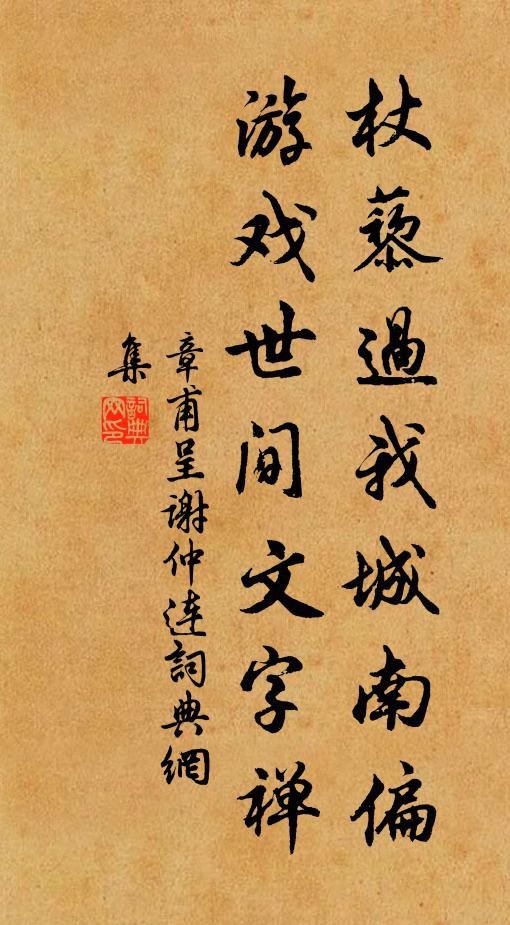 杖藜過我城南偏
游戏世间文字禅
章甫呈谢仲连詞典網
集
詞典網印